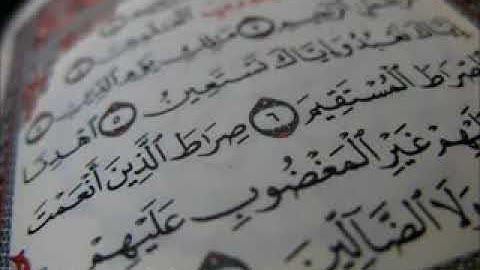 الرحيم ۝ ملك يوم الدين ۝
إياك نعبد وإياك نستعين ۝ اهدنا
الصراط المستقيم ۝ صراط الذين أنعمت
عليهم غير المغضوب عليهم
ولا الضالين